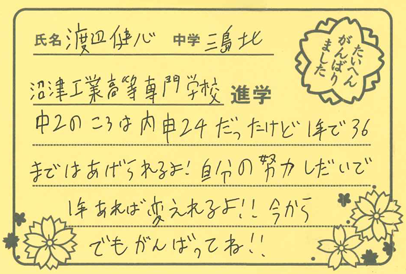 氏名 渡辺健心 中学 三島北
たいへん
がんばり
ました
沼津工業高等専門学校 進学
中2のころは内申24だったけど1年で36
まではあげられるよ!自分の努力しだいで
1年あれば変えれるよ!!今から
でもがんばってね!!